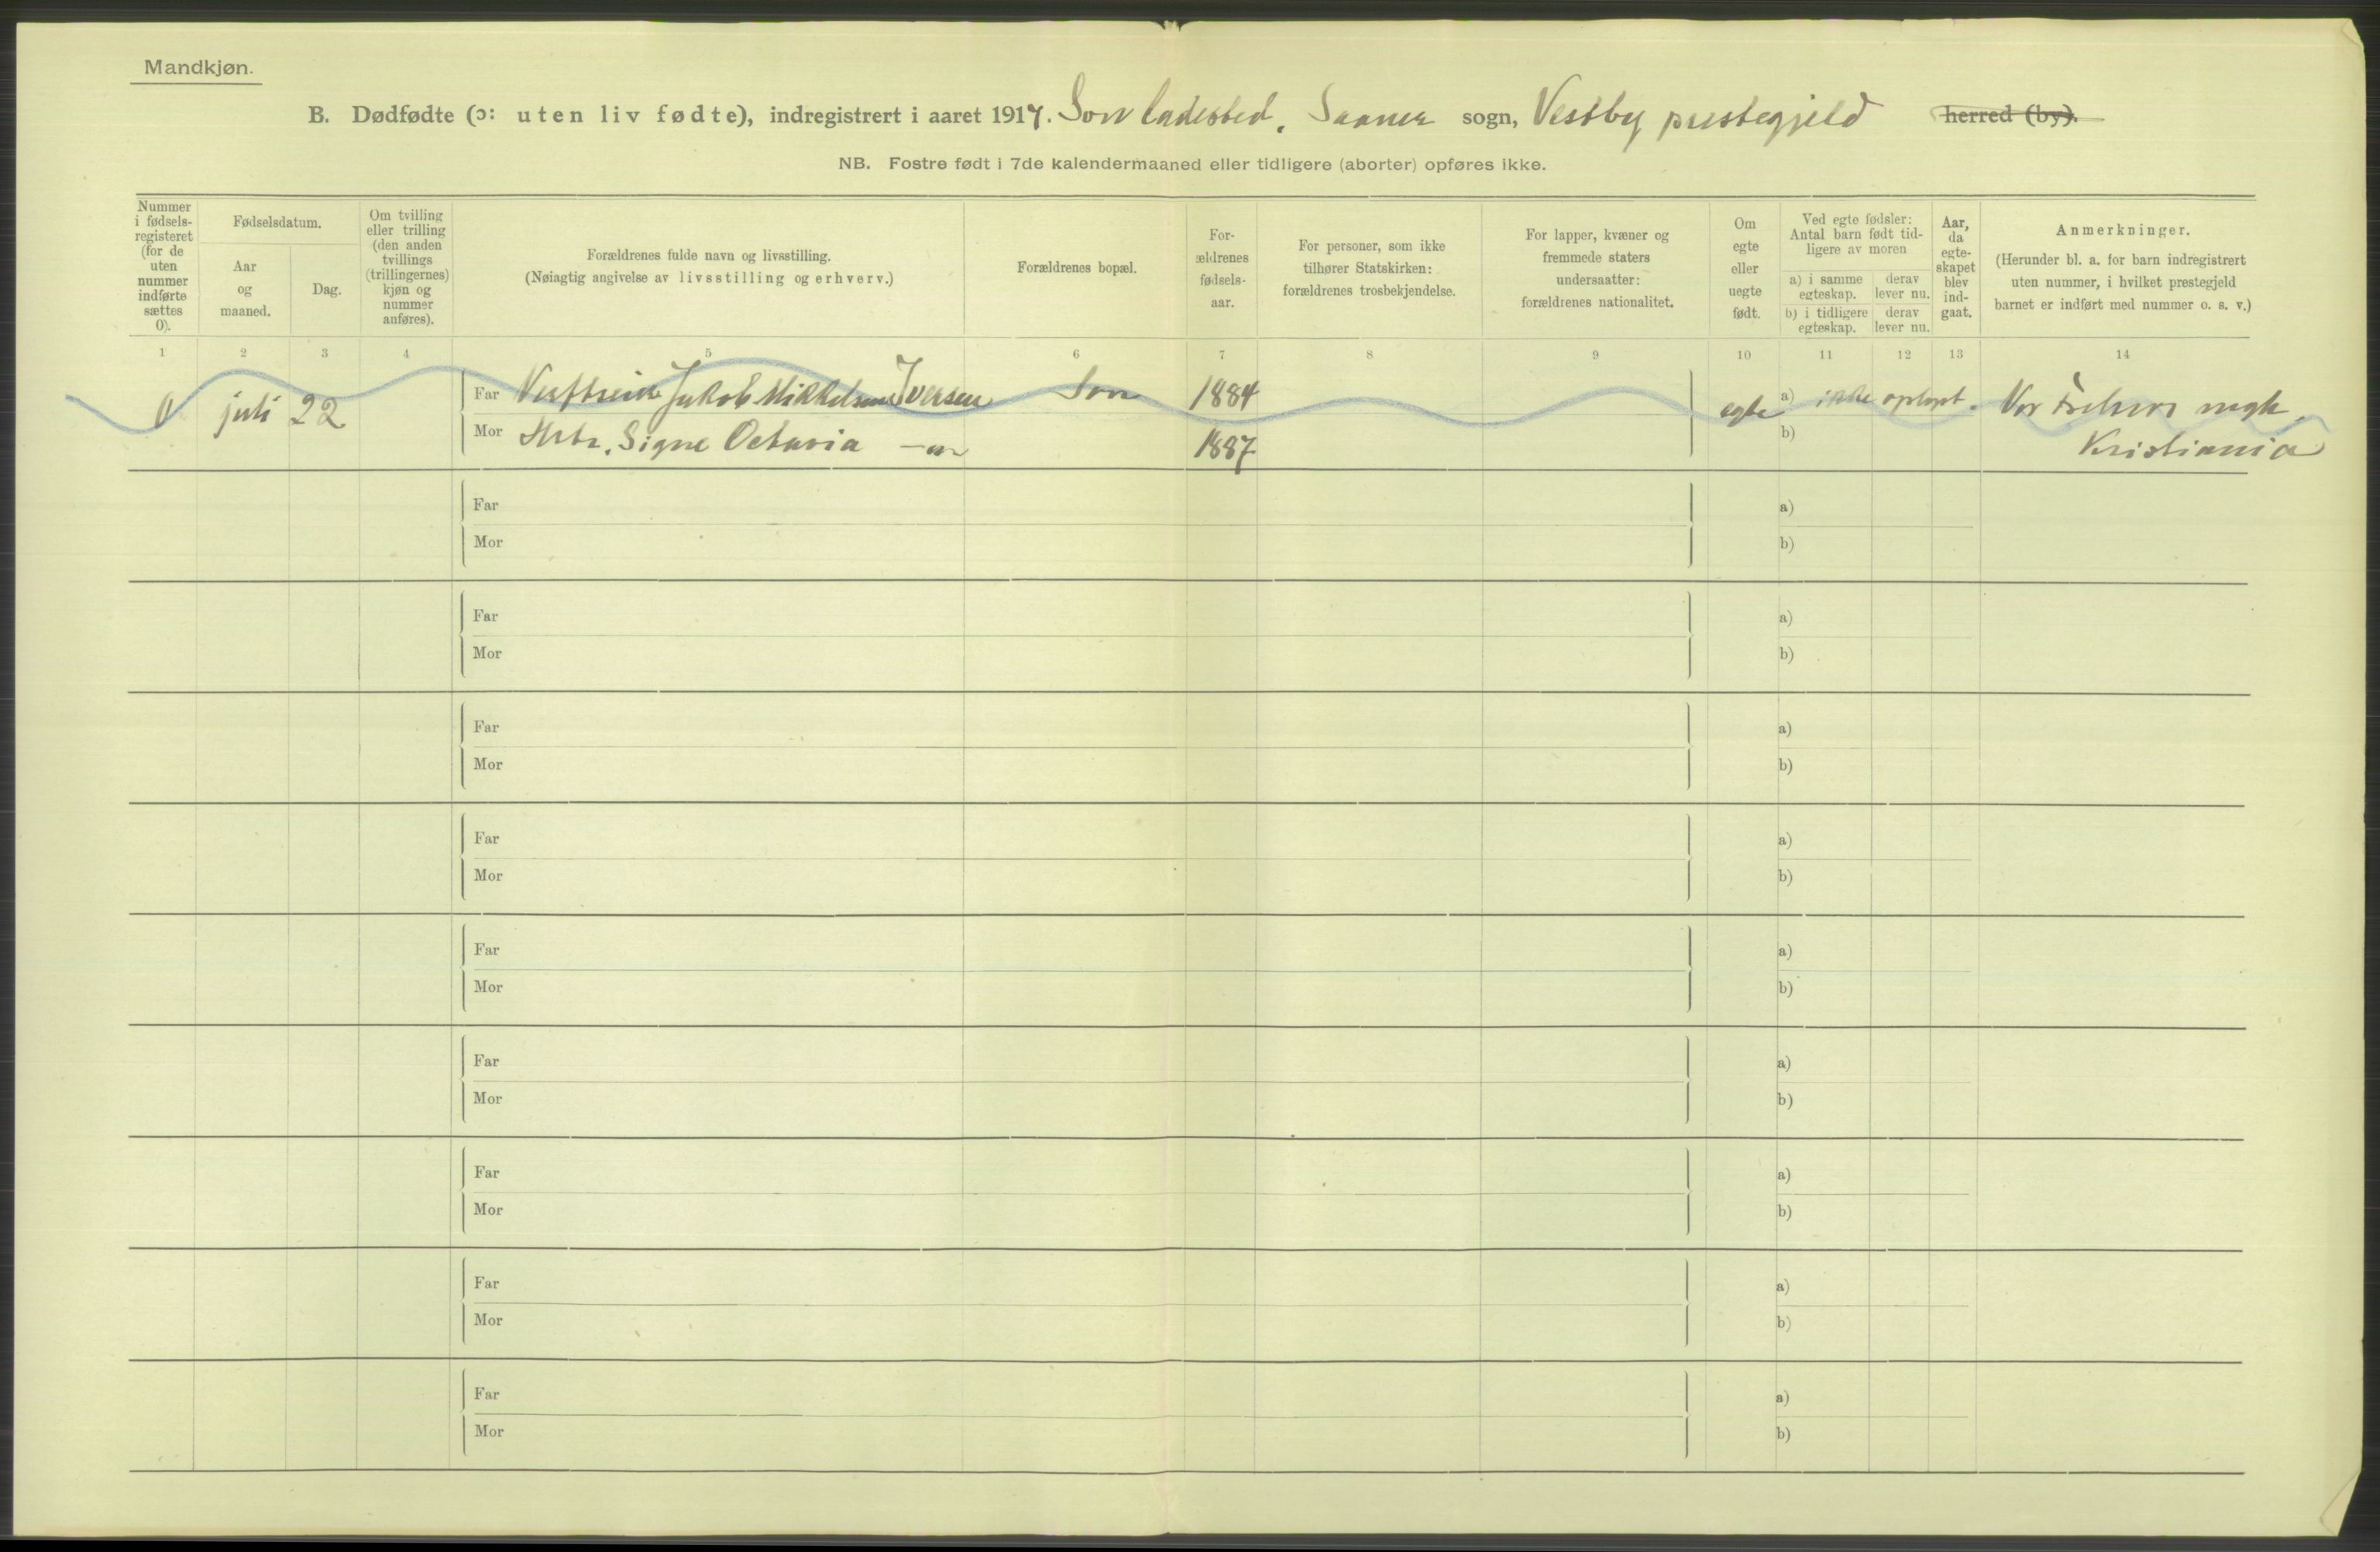 Mandkjøn.
B. Dødfødte (ɔ: uten liv fødte), indregistrert i aaret 1917. Son ladested, Saaner sogn, Vestby prestegjeld herred (by).
NB. Fostre født i 7de kalendermaaned eller tidligere (aborter) opføres ikke.
Nummer i fødsels-registeret (for de uten nummer indførte sættes 0).
Fødselsdatum.
Aar og maaned.
Dag.
Om tvilling eller trilling (den anden tvillings (trillingernes) kjøn og nummer anføres).
Forældrenes fulde navn og livsstilling.
(Nøiagtig angivelse av livsstilling og erhverv.)
Forældrenes bopæl.
For-ældrenes fødsels-aar.
For personer, som ikke tilhører Statskirken: forældrenes trosbekjendelse.
For lapper, kvæner og fremmede staters undersaatter: forældrenes nationalitet.
Om egte eller uegte født.
Ved egte fødsler: Antal barn født tid-ligere av moren
a) i samme egteskap. derav lever nu.
b) i tidligere egteskap. derav lever nu.
Aar, da egte-skapet blev ind-gaat.
Anmerkninger.
(Herunder bl. a. for barn indregistrert uten nummer, i hvilket prestegjeld barnet er indført med nummer o. s. v.)
1 2 3 4 5 6 7 8 9 10 11 12 13 14
0 juli 22 Far Jakob Mikkelsen Iversen Son 1884 egte a) ikke oplyst. Vor Frelsers mgh.
Mor Hstr. Signe Octavia —"— 1887 b) Kristiania
Far a)
Mor b)
Far a)
Mor b)
Far a)
Mor b)
Far a)
Mor b)
Far a)
Mor b)
Far a)
Mor b)
Far a)
Mor b)
Far a)
Mor b)
Far a)
Mor b)